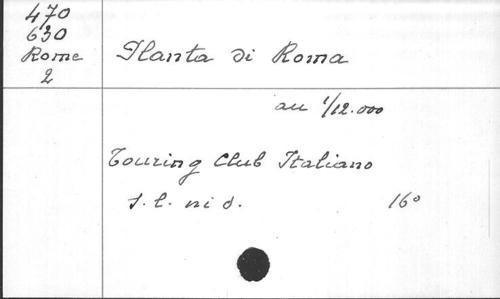 470
630
Rome
2
Planta di Roma
au 1/12.000
Touring Club Italiano
s. l. ni d.
16°